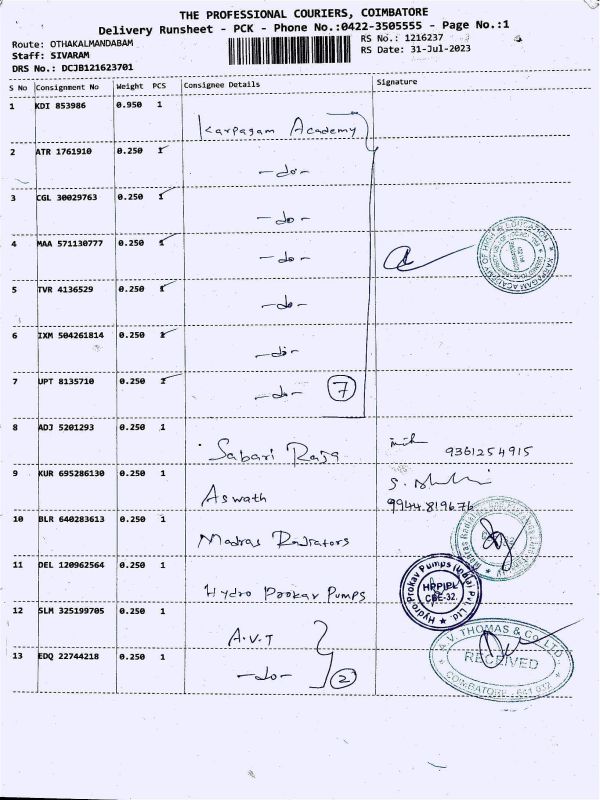 THE PROFESSIONAL COURIERS, COIMBATORE
Delivery Runsheet - PCK - Phone No.:0422-3505555 - Page No.:1
Route: OTHAKALMANDABAM
Staff: SIVARAM
DRS No.: DCJB121623701
RS No.: 1216237
RS Date: 31-Jul-2023
S No Consignment No Weight PCS Consignee Details Signature
1 KDI 853986 0.950 1 Karpagam Academy
2 ATR 1761910 0.250 1 -do-
3 CGL 30029763 0.250 1 -do-
4 MAA 571130777 0.250 1 -do-
5 TVR 4136529 0.250 1 -do-
6 IXM 504261814 0.250 1 -do-
7 UPT 8135710 0.250 1 -do- 7
8 ADJ 5201293 0.250 1 Sabari Raja 9361254915
9 KUR 695286130 0.250 1 Aswath 9944819676
10 BLR 640283613 0.250 1 Madras Radiators
11 DEL 120962564 0.250 1 Hydro Prokav Pumps
Hydro Prokav Pumps (India) Pvt. Ltd.
HPPIPL
CBE-32.
12 SLM 325199705 0.250 1 A.V.T
13 EDQ 22744218 0.250 1 -do- 2
A.V. THOMAS & CO. LTD.
RECEIVED
COIMBATORE